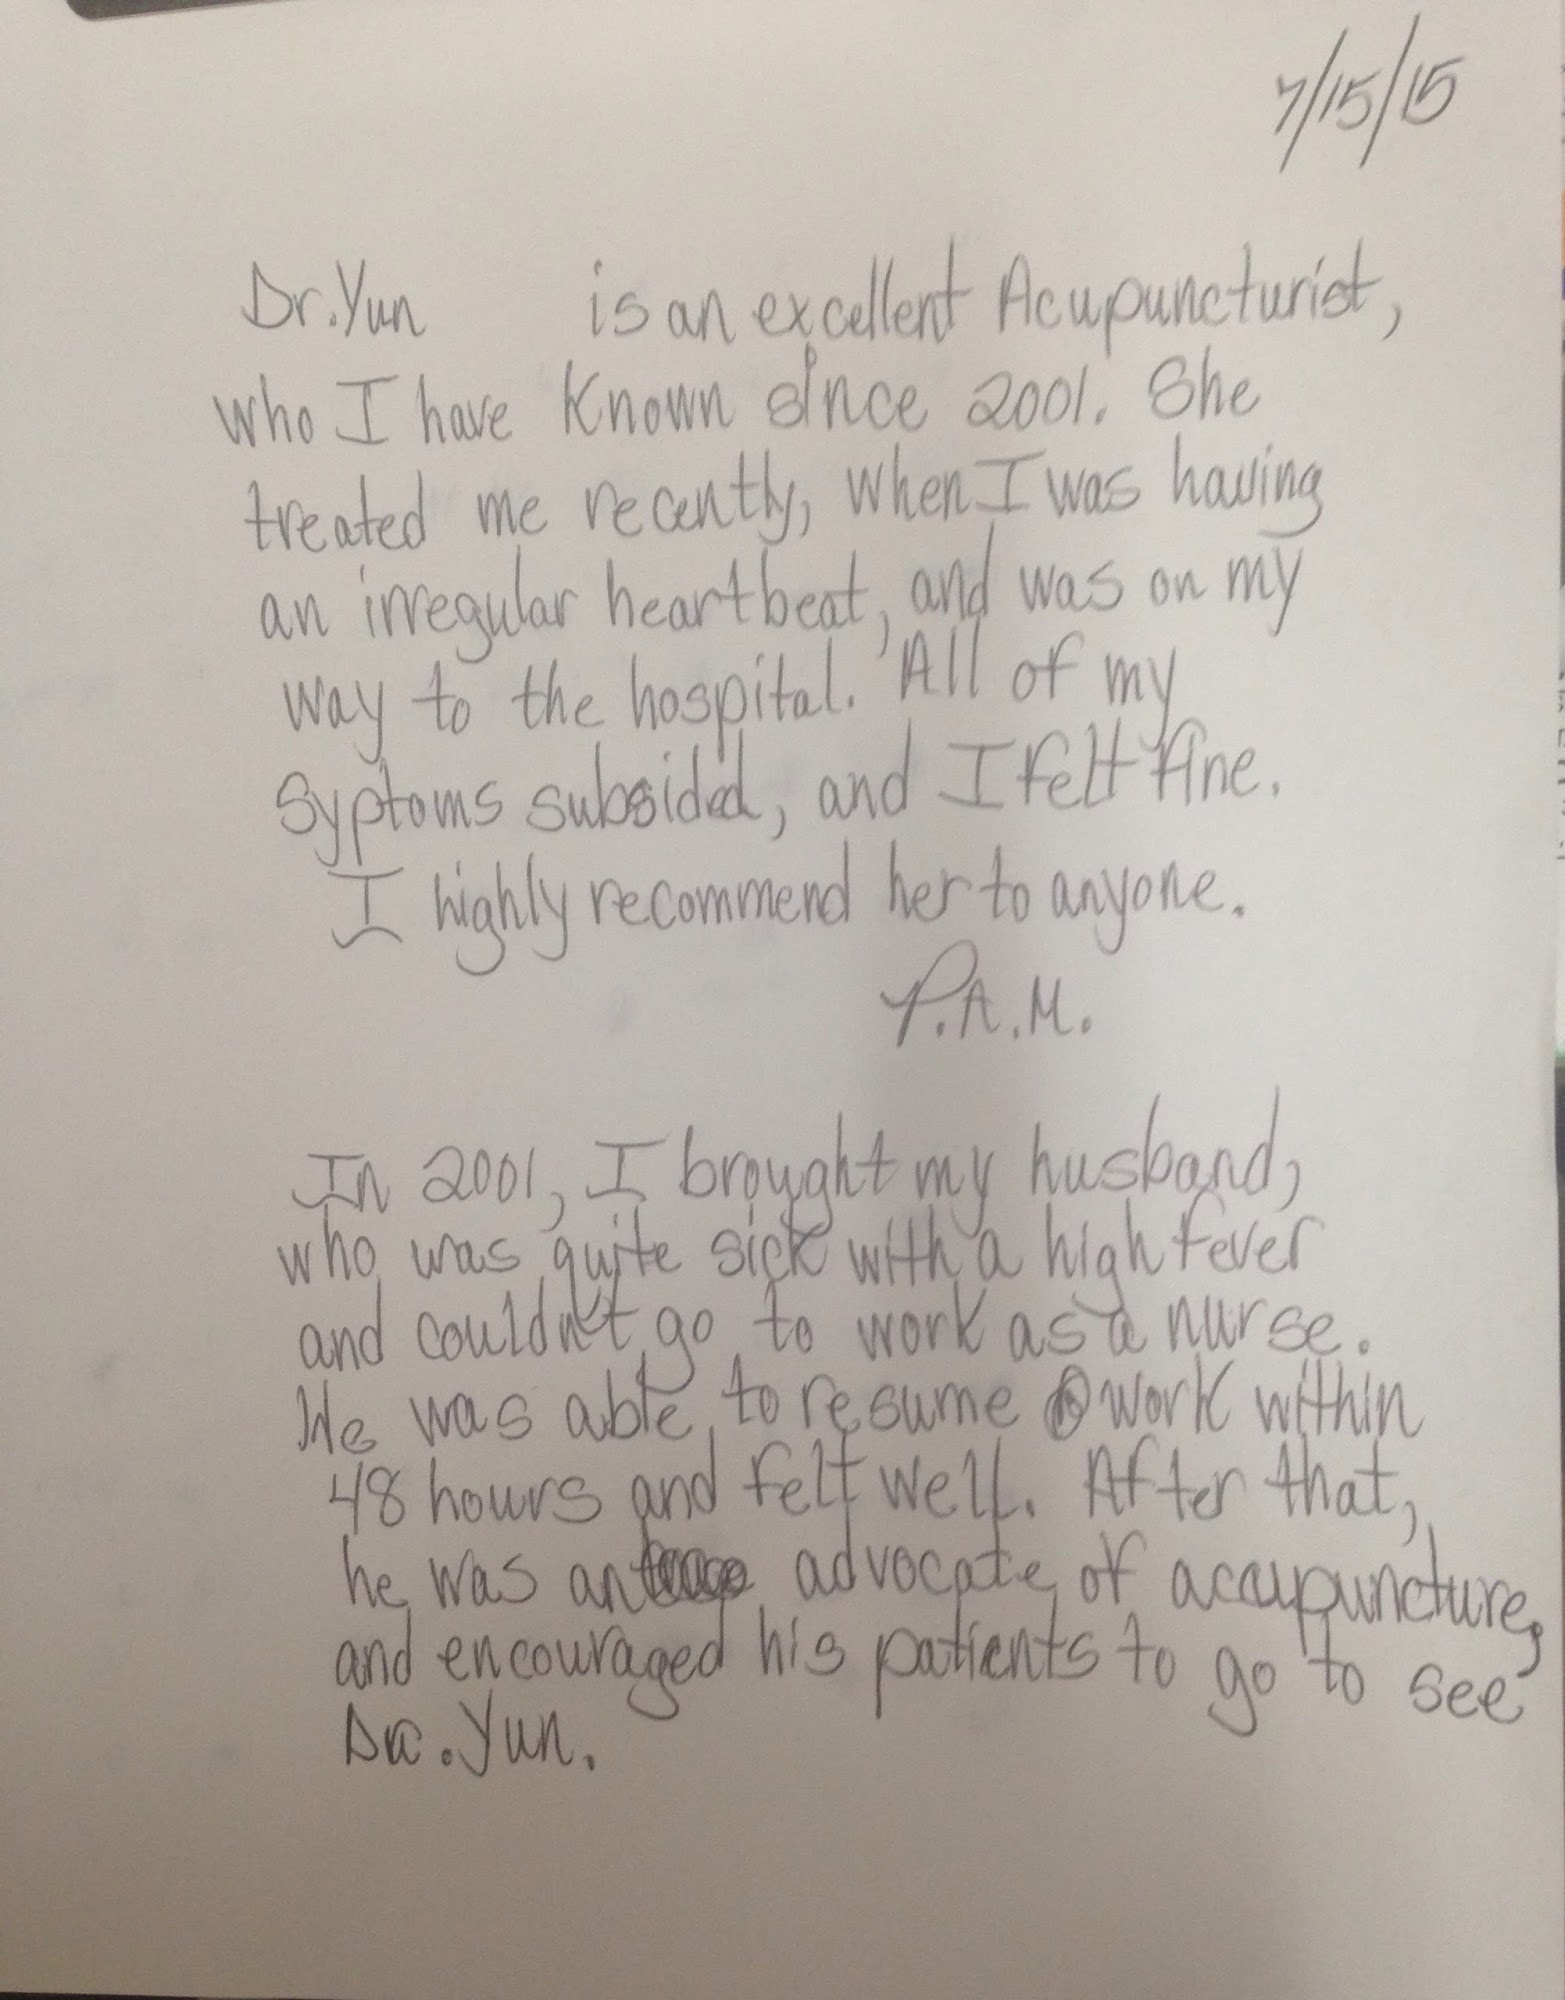 7/15/15
Dr. Yun is an excellent Acupuncturist,
who I have known since 2001. She
treated me recently, when I was having
an irregular heartbeat, and was on my
way to the hospital. All of my
syptoms subsided, and I felt fine.
I highly recommend her to anyone.
P.A.M.
In 2001, I brought my husband,
who was quite sick with a high fever
and couldn't go to work as a nurse.
He was able to resume work within
48 hours and felt well. After that,
he was an advocate of acupuncture,
and encouraged his patients to go to see
Dr. Yun.